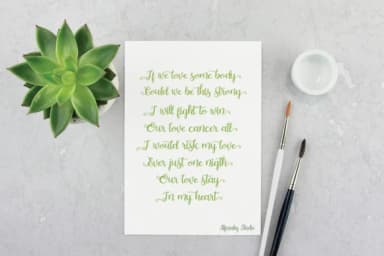 If we love some body
Could we be this strong
I will fight to win
Our love cancer all
I would risk my love
Ever just one nigth
Our love stay
In my heart
Alpandy Studio